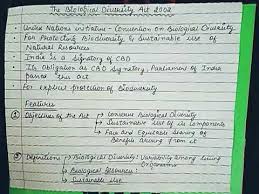 The Biological Diversity Act 2002
- United Nations initiative - Convention on Biological Diversity
- For Protecting Biodiversity & Sustainable use of
Natural Resources
- India is a Signatory of CBD
- Its obligation as CBD Signatory, Parliament of India
passes this act
- For explicit protection of Biodiversity
Features
① Objectives of the Act → Conserve Biological Diversity
→ Sustainable use of its components
→ Fair and Equitable sharing of
Benefits arising from it
② Definition → Biological Diversity: Variability among living
Organisms
→ Biological Resources:
→ Sustainable Use